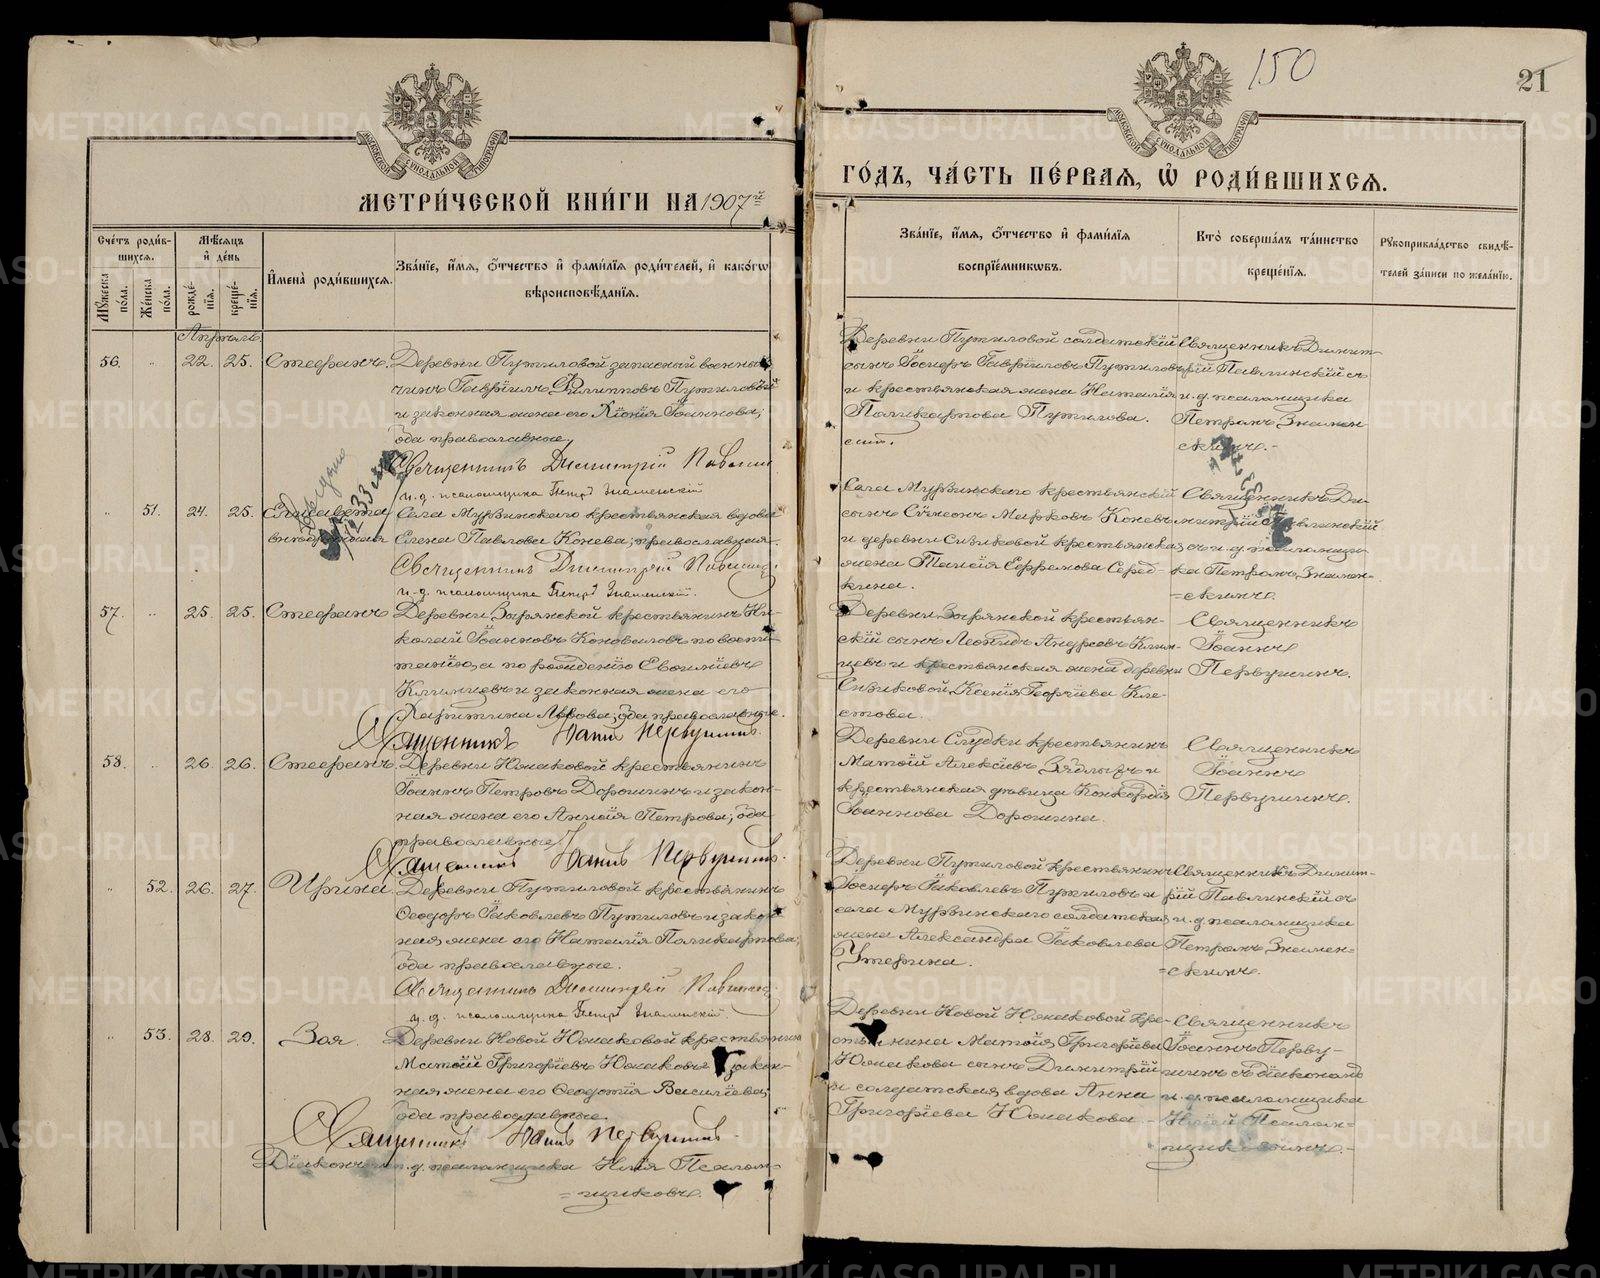 150
21
МЕТРИ́ЧЕСКОЙ КНИ́ГИ НА 1907й
ГО́ДЪ, ЧА́СТЬ ПЕ́РВАЯ, Ѡ҆ РОДИ́ВШИХСЯ.
Сче́тъ роди́в-
шихся.
Мꙋжеска по́ла.
Же́нска по́ла.
Мѣ́сяцъ и҆ де́нь
рожде́-
нїя.
креще́-
нїя.
И҆мена̀ роди́вшихся.
Зва́нїе, и҆́мя, ѻ҆́тчество и҆ фами́лїя роди́телей, и҆ како́гѡ
вѣроисповѣ́данїя.
Зва́нїе, и҆́мя, ѻ҆́тчество и҆ фами́лїя
воспрїе́мникѡвъ.
Кто̀ соверша́лъ та́инство
креще́нїя.
Рꙋкоприкла́дство свидѣ́-
телей за́писи по жела́нїю.
Апрѣль.
56. 22. 25. Стефанъ. Деревни Путиловой запасный военный
чинъ Гавріилъ Филипповъ Путиловъ
и законная жена его Хіонія Іоаннова;
оба православные.
Священникъ Димитрій Павлинскій
и. д. псаломщика Петръ Знаменскій
Деревни Путиловой солдатскій
сынъ Іосифъ Гавріиловъ Путиловъ
и крестьянская жена Наталія
Поликарпова Путилова.
Священникъ Димит-
рій Павлинскій съ
и. д. псаломщика
Петромъ Знамен-
скимъ.-
51. 24. 25. Елисавета
внебрачная
Села Мурзинскаго крестьянская вдова
Елена Павлова Конева; православная.
Священникъ Димитрій Павлинскій
и. д. псаломщика Петръ Знаменскій.
Села Мурзинскаго крестьянскій
сынъ Сѵмеонъ Марковъ Коневъ
и деревни Сизиковой крестьянская
жена Таисія Ефремова Серед-
кина.
Священникъ Ди-
митрій Павлинскій
съ и. д. псаломщи-
ка Петромъ Знамен-
=скимъ.
57. 25. 25. Стефанъ Деревни Зырянской крестьянинъ Ни-
колай Іоанновъ Коноваловъ по воспи-
танію, а по рожденію Евѳиміевъ
Климцевъ и законная жена его
Харитина Львова; оба православные.
Священникъ Іоаннъ Первушинъ.
Деревни Зырянской крестьян-
скій сынъ Леонидъ Андреевъ Клим-
цевъ и крестьянская жена деревни
Сизиковой Ксенія Георгіева Кле-
стова.
Священникъ
Іоаннъ
Первушинъ.
58. 26. 26. Стефанъ. Деревни Южаковой крестьянинъ
Іоаннъ Петровъ Дорогинъ и закон-
ная жена его Анисія Петрова; оба
православные.
Священникъ Іоаннъ Первушинъ.
Деревни Слудки крестьянинъ
Матѳій Алексіевъ и
крестьянская дѣвица Конкордія
Іоаннова Дорогина.
Священникъ
Іоаннъ
Первушинъ.
52. 26. 27. Ирина. Деревни Путиловой крестьянинъ
Ѳеодоръ Іаковлевъ Путиловъ и закон-
ная жена его Наталія Поликарпова;
оба православные.
Священникъ Димитрій Павлинскій
и. д. псаломщика Петръ Знаменскій.
Деревни Путиловой крестьянинъ
Іосифъ Іаковлевъ Путиловъ и
села Мурзинскаго солдатская
жена Александра Іаковлева
Утерина.
Священникъ Димит-
рій Павлинскій съ
и. д. псаломщика
Петромъ Знамен=
=скимъ.
53. 28. 29. Зоя. Деревни Новой Южаковой крестьянинъ
Матѳій Григоріевъ Южаковъ и закон-
ная жена его Ѳеодотія Василіева;
оба православные.
Священникъ Іоаннъ Первушинъ.
Діаконъ и. д. псаломщика Илія Псалом-
=щиковъ.
Деревни Новой Южаковой кре-
стьянина Матѳія Григоріева
Южакова сынъ Димитрій
и солдатская вдова Анна
Григоріева Южакова.
Священникъ
Іоаннъ Перву-
шинъ съ діакономъ
и. д. псаломщика
Иліей Псалом-
щиковымъ.-